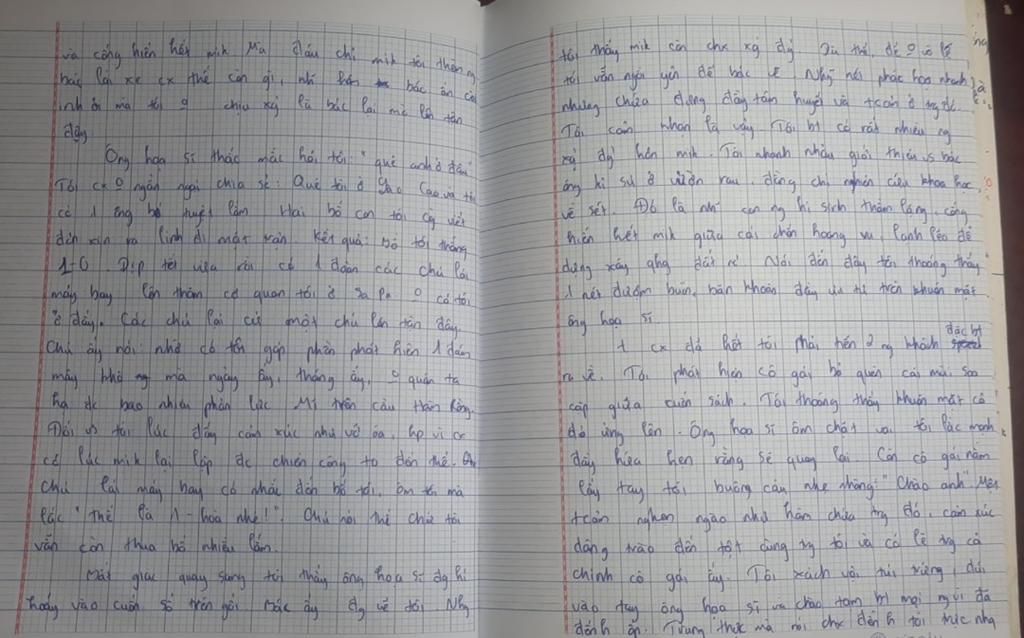 và cống hiến hết mik Mà đâu chỉ mik tôi thôi ng
bác lái xe cx thế còn gì, nhỉ bác ăn cái
mà tôi o chịu xg là bác lại mò lên tận
đây
Ông họa sĩ thắc mắc hỏi tôi: "quê anh ở đâu
Tôi cx o ngần ngại chia sẻ: Quê tôi ở Lào Cao và tôi
có 1 ông bố tuyệt lắm Hai bố con tôi cg viết
đơn xin ra lính đi mặt trận. Kết quả: Bố tôi thắng
1-0. Dịp tết vừa rồi có 1 đoàn các chú lái
máy bay lên thăm cơ quan tôi ở Sa Pa o có tôi
ở đấy. Các chú lại cử một chú lên tận đây.
Chú ấy nói: nhờ có tôi góp phần phát hiện 1 đám
mây khô mà ngày ấy, tháng ấy, o quân ta
hạ đc bao nhiêu phản lực Mĩ trên cầu Hàm Rồng.
Đối vs tôi lúc đấy cảm xúc như vỡ òa, hp vì cx
có lúc mik lại lập đc chiến công to đến thế.
Chú lái máy bay có nhắc đến bố tôi, ôm tôi mà
lắc "thế là 1 - hòa nhé!". Chú nói thế chứ tôi
vẫn còn thua bố nhiều lắm.
Bất giác quay sang tôi thấy ông họa sĩ đg hí
hoáy vào cuốn sổ trên gối Bác ấy đg vẽ tôi Nhg
tôi thấy mik còn chx xg đg Dù thế, để o vô lễ
tôi vẫn ngồi yên để bác vẽ Nhg nét phác họa nhanh
nhưng chứa đựng đầy tâm huyết và tcảm ở trg đó.
Tôi cảm nhận là vậy Tôi bt có rất nhiều ng
xg đg hơn mik. Tôi nhanh nhảu giới thiệu vs bác
ông kĩ sư ở vườn rau, đồng chí nghiên cứu khoa học,
về sét. Đó là nhg con ng hi sinh thầm lặng, cống
hiến hết mik giữa cái chốn hoang vu lạnh lẽo để
dựng xây qhg đất nc Nói đến đây tôi thoáng thấy
1 nét đượm buồn, băn khoăn đầy ưu tư trên khuôn mặt
ông họa sĩ.
t cx đã hết tôi phải tiễn 2 ng khách đặc bt
ra về. Tôi phát hiện cô gái bỏ quên cái mùi soa
cặp giữa cuốn sách. Tôi thoáng thấy khuôn mặt cô
đỏ ửng lên. Ông họa sĩ ôm chặt vai tôi lắc mạnh
đầy hứa hẹn rằng sẽ quay lại. Còn cô gái nắm
lấy tay tôi buông câu nhẹ nhàng: "Chào anh". Một
tcảm nghẹn ngào như hàm chứa trg đó, cảm xúc
dâng trào đến tột cùng trg tôi và có lẽ trg cả
chính cô gái ấy. Tôi xách vội túi trứng, dúi
vào tay ông họa sĩ và chào tạm bt mọi ng vì đã
đến h ốp. Trung thực mà nói chx đến h tôi trực nhg